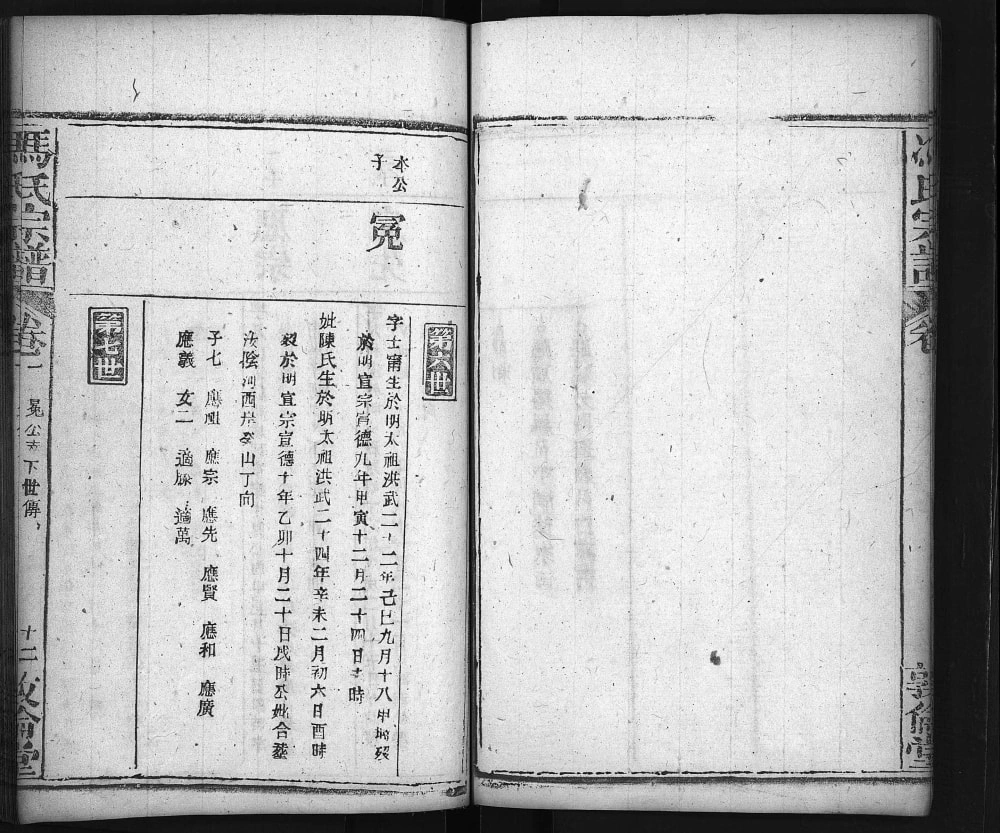 氏宗譜
卷
敦倫堂
水公
子
冕
第六世
字士甯生於明太祖洪武二十二年己巳九月十八申時歿
於明宣宗宣德九年甲寅十二月二十四日 時
妣陳氏生於明太祖洪武二十四年辛未二月初六日酉時
歿於明宣宗宣德十年乙卯十月二十日戌時公妣合塟
汝陰河西岸癸山丁向
子七 應祖 應宗 應先 應賢 應和 應廣
應義 女二 適滕 適萬
第七世
馮氏宗譜
卷一
冕公支下世傳
十二
敦倫堂